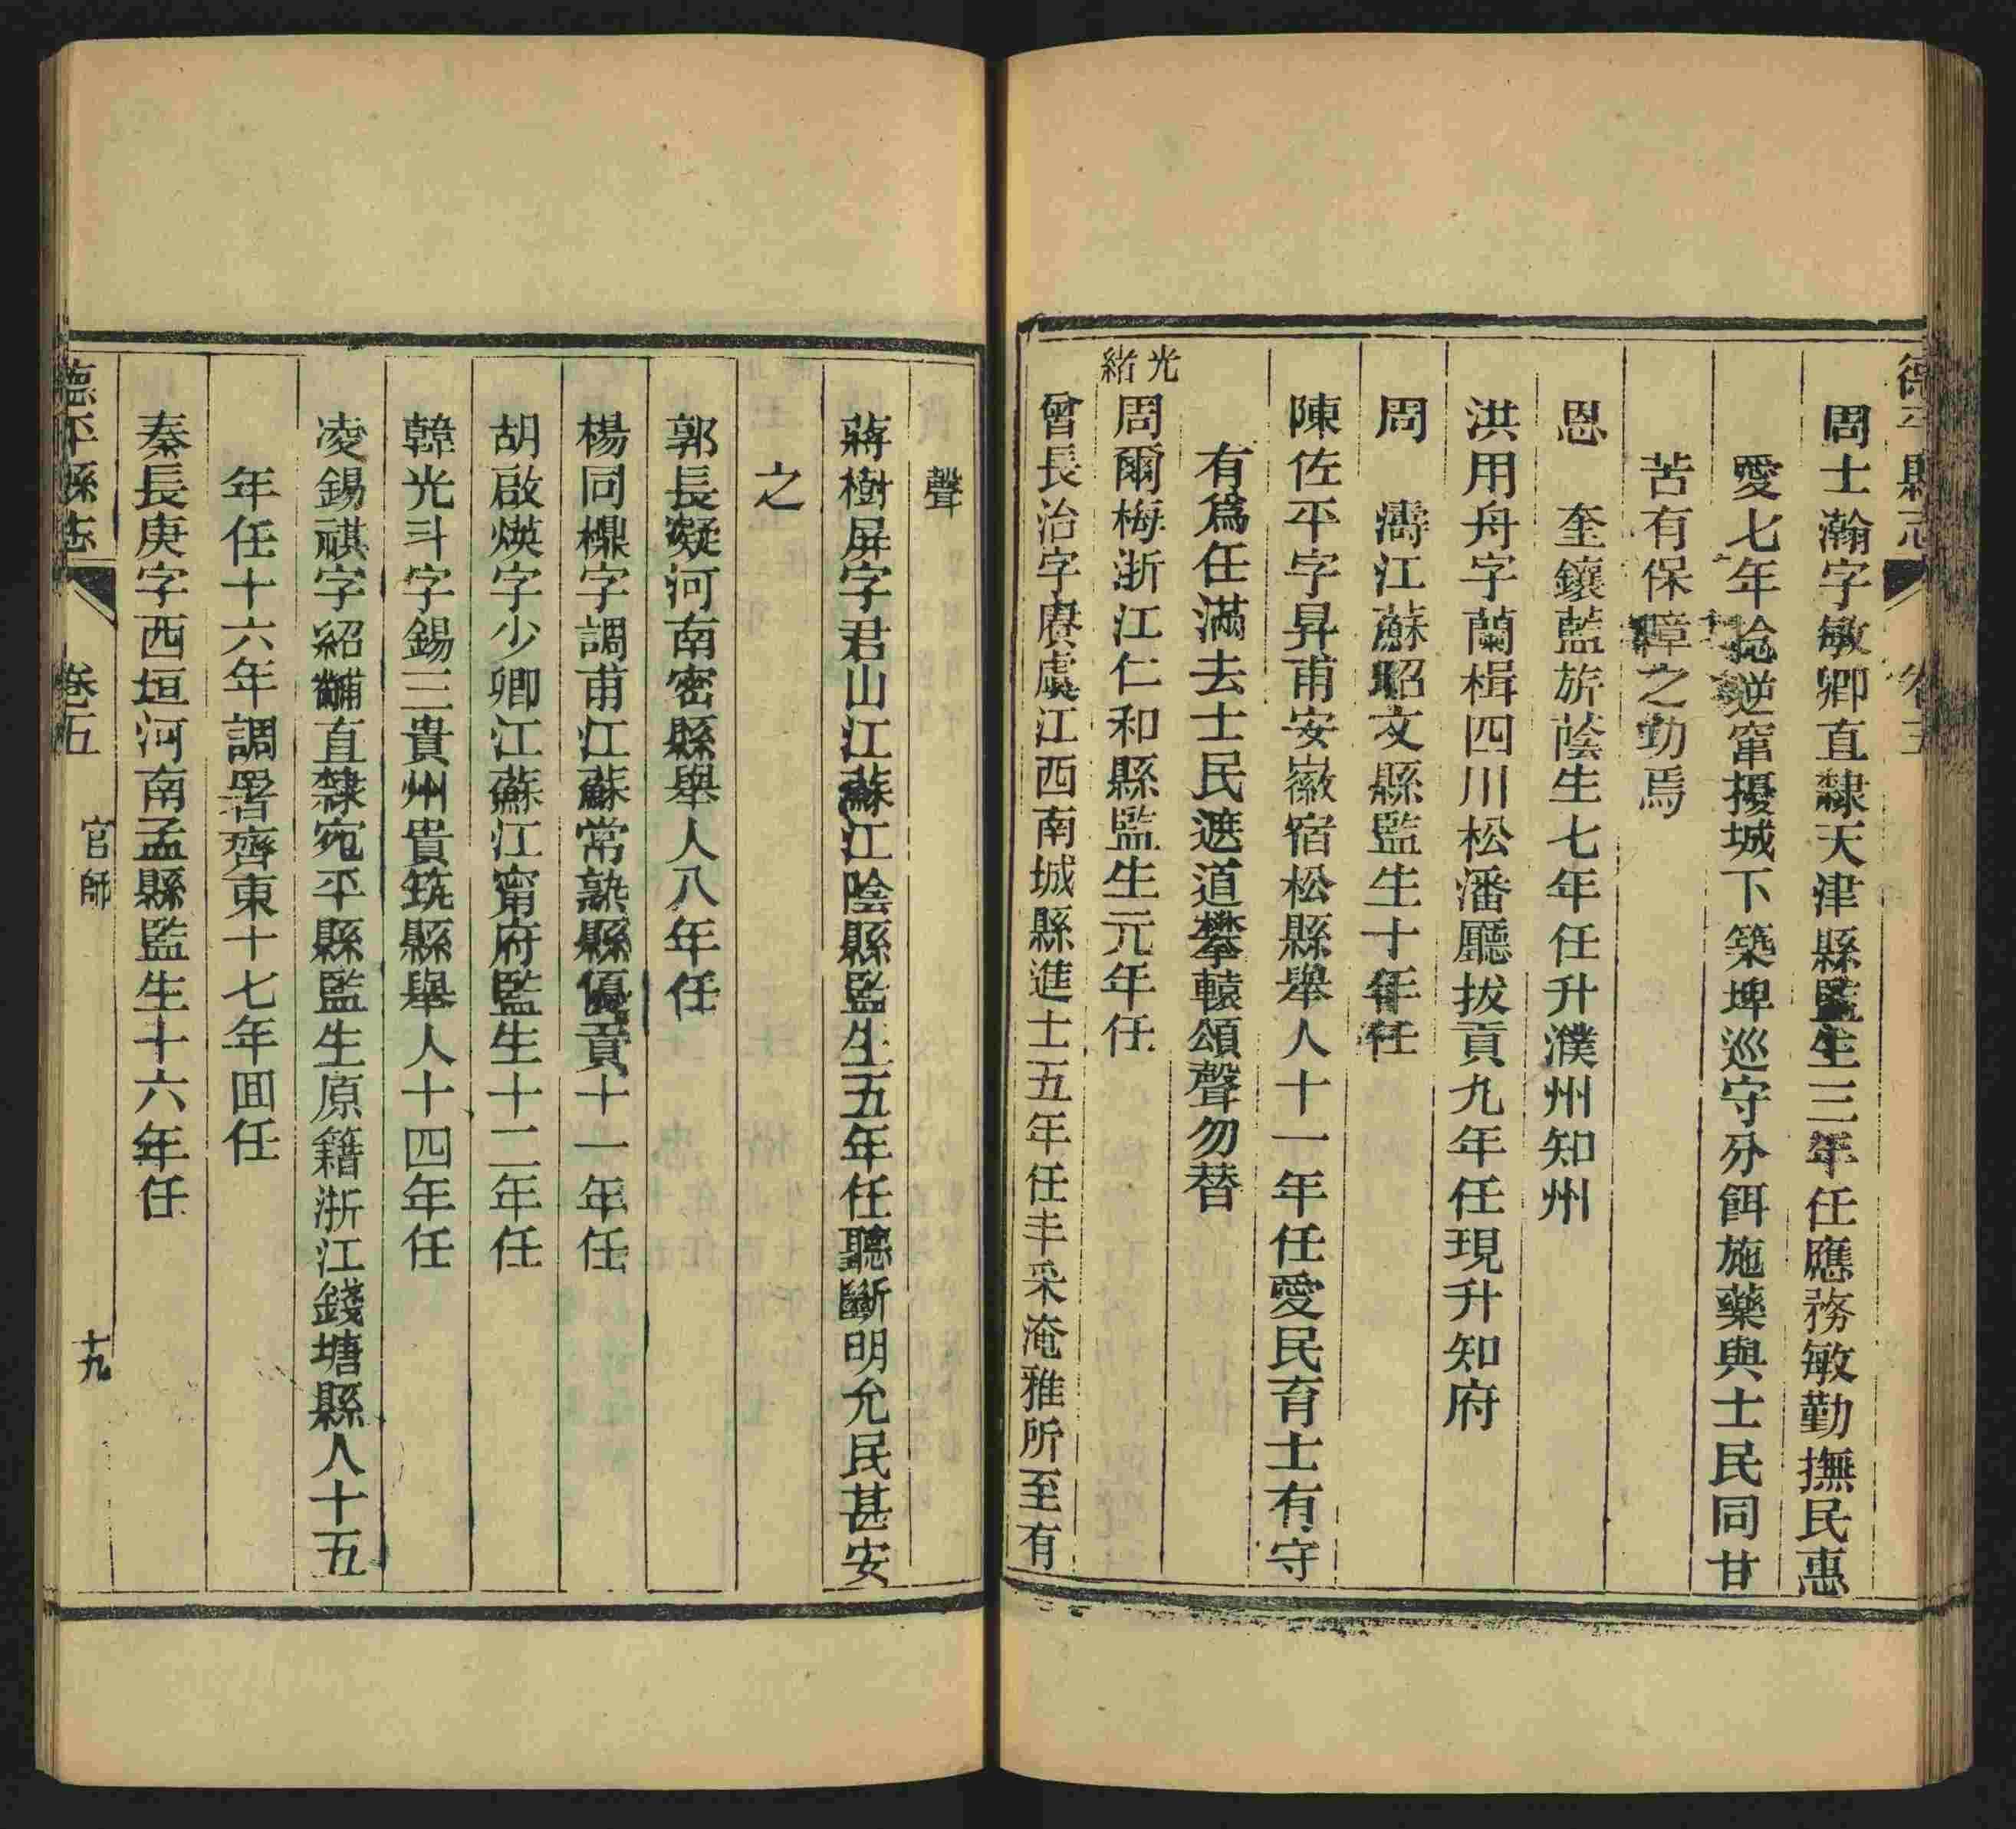 德平縣志 卷五
周士瀚字敏卿直隸天津縣監生三年任應務敏勤撫民惠
愛七年捻逆竄擾城下築埤巡守分餌施藥與士民同甘
苦有保障之勤焉
恩 奎鑲藍旂蔭生七年任升濮州知州
洪用舟字蘭楫四川松潘廳拔貢九年任現升知府
周 濤江蘇昭文縣監生十年任
陳佐平字昇甫安徽宿松縣舉人十一年任愛民育士有守
有為任滿去士民遮道攀轅頌聲勿替
光緒
周爾梅浙江仁和縣監生元年任
曾長治字賡虞江西南城縣進士五年任丰采淹雅所至有
聲
蔣樹屏字君山江蘇江陰縣監生五年任聽斷明允民甚安
之
郭長凝河南密縣舉人八年任
楊同櫆字調甫江蘇常熟縣優貢十一年任
胡啟煐字少卿江蘇江甯府監生十二年任
韓光斗字錫三貴州貴筑縣舉人十四年任
凌錫祺字紹黼直隸宛平縣監生原籍浙江錢塘縣人十五
年任十六年調署齊東十七年囬任
秦長庚字西垣河南孟縣監生十六年任
德平縣志 卷五 官師 十九